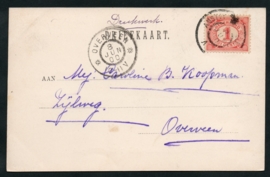 Drukwerk
BRIEFKAART.
OVERVEEN
AAN Mej. Caroline B. Koopman
Zijlweg.
Overveen